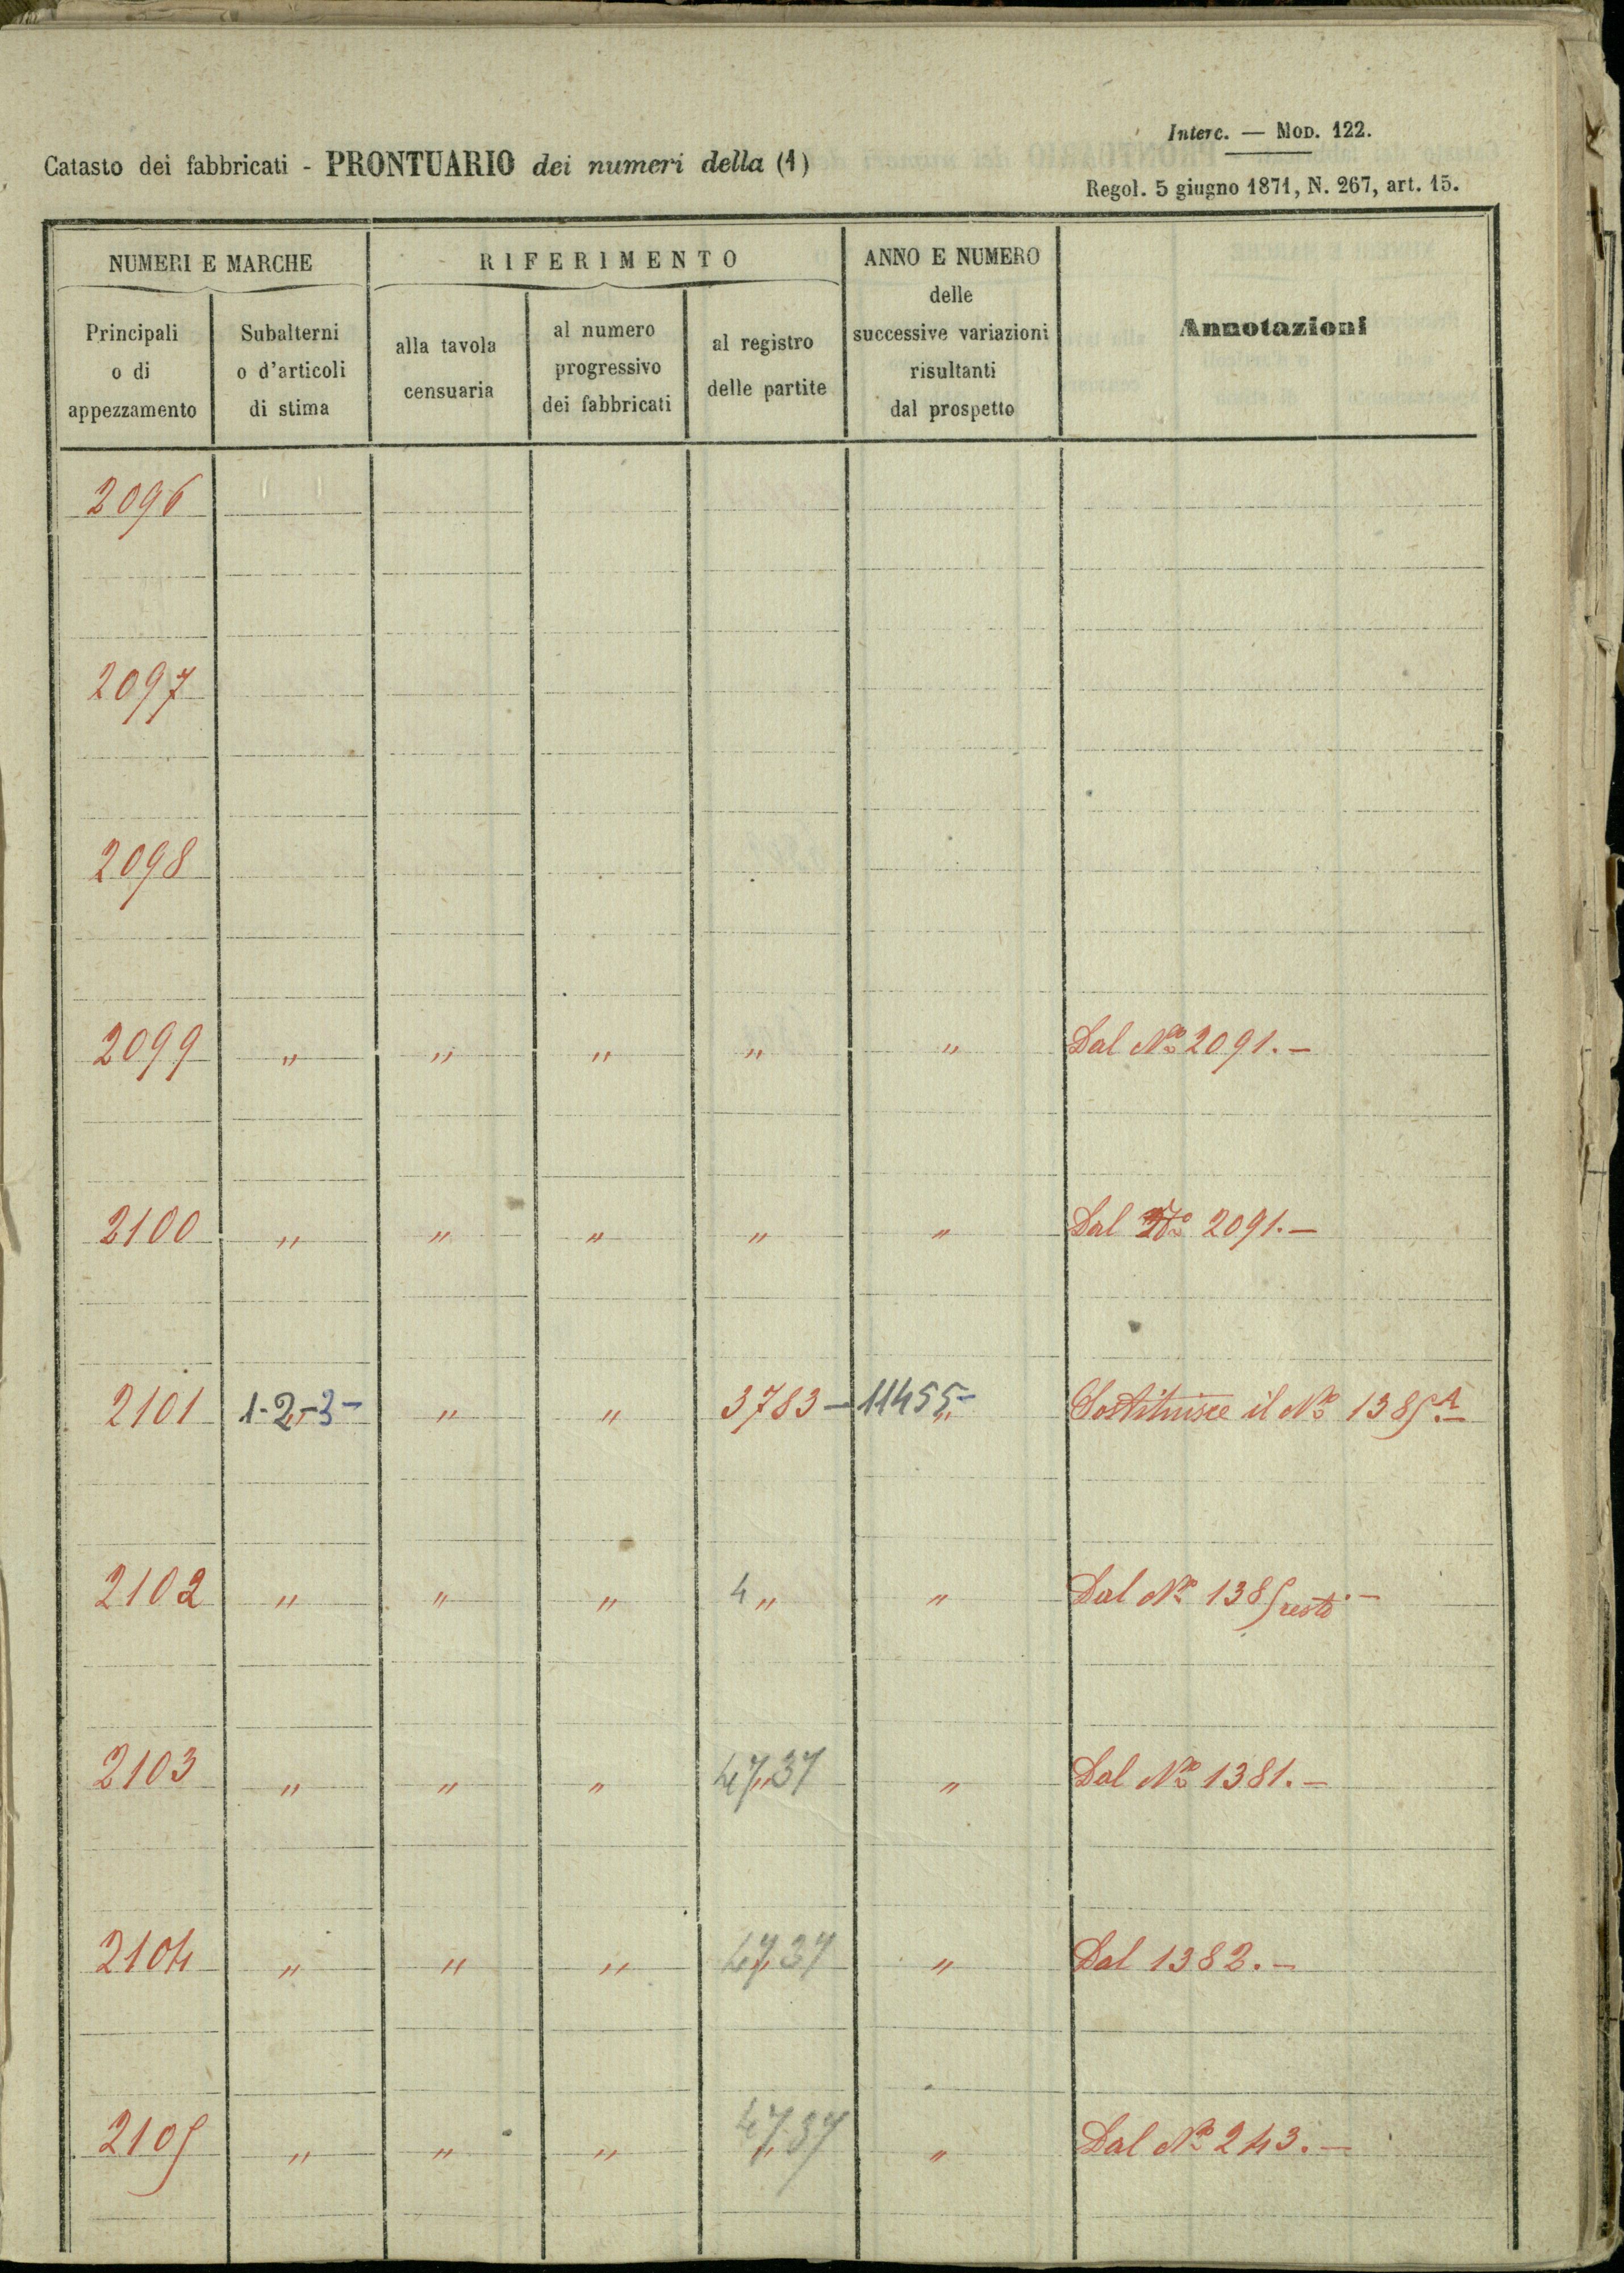 Interc. — MOD. 122.
Catasto dei fabbricati - PRONTUARIO dei numeri della (1)
Regol. 5 giugno 1871, N. 267, art. 15.
NUMERI E MARCHE
Principali o di appezzamento
Subalterni o d'articoli di stima
RIFERIMENTO
alla tavola censuaria
al numero progressivo dei fabbricati
al registro delle partite
ANNO E NUMERO delle successive variazioni risultanti dal prospetto
Annotazioni
2096
2097
2098
2099 " " " " " Dal No 2091. —
2100 " " " " " Dal No 2091. —
2101 1-2-3- " " " 3783 — 11455- " Sostituisce il No 1385 A —
2102 " " " 4 " " Dal No 1385 resto. —
2103 " " " 4737 " " Dal No 1381. —
2104 " " " 4737 " " Dal 1382. —
2105 " " " 4737 " " Dal No 243. —